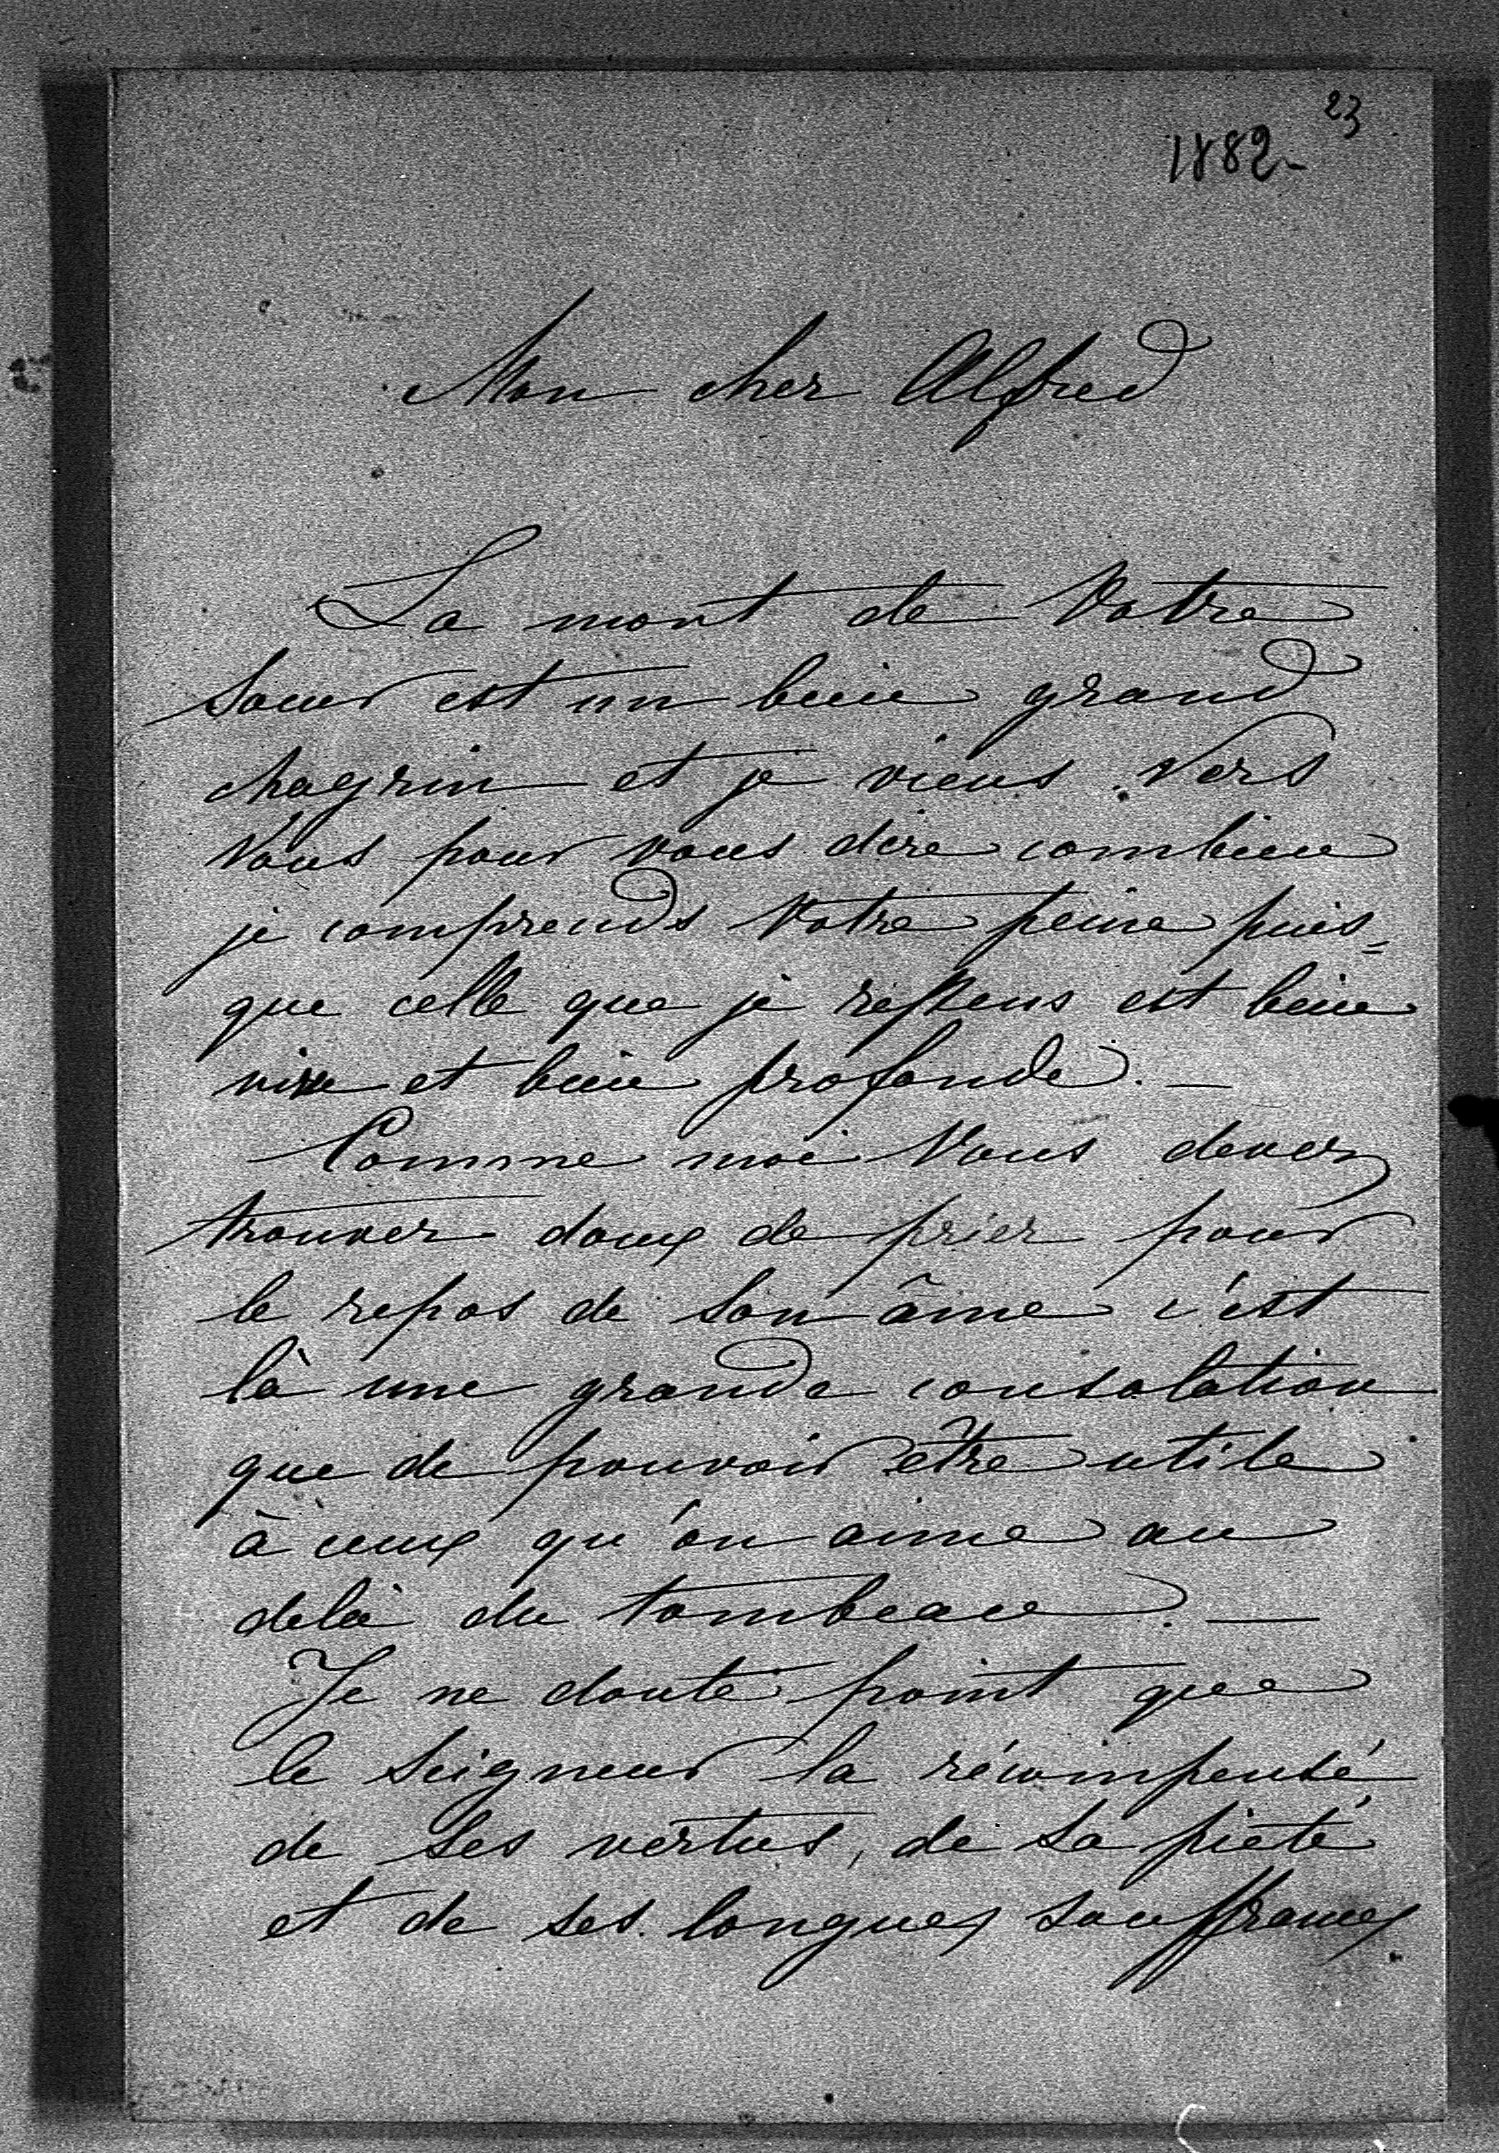 23
1882-
Mon cher Alfred
La mort de Votre
Soeur est un bien grand
chagrin et je viens vers
Vous pour vous dire combien
je comprends Votre peine puis=
que celle que je ressens est bien
vive et bien profonde. —
Comme moi Vous devez
trouver doux de prier pour
le repos de son âme c'est
là une grande consolation
que de pouvoir être utile
à ceux qu'on aime au
delà du tombeau. —
Je ne doute point que
le Seigneur la récompense
de Ses vertus, de sa piété
et de ses longues souffrances